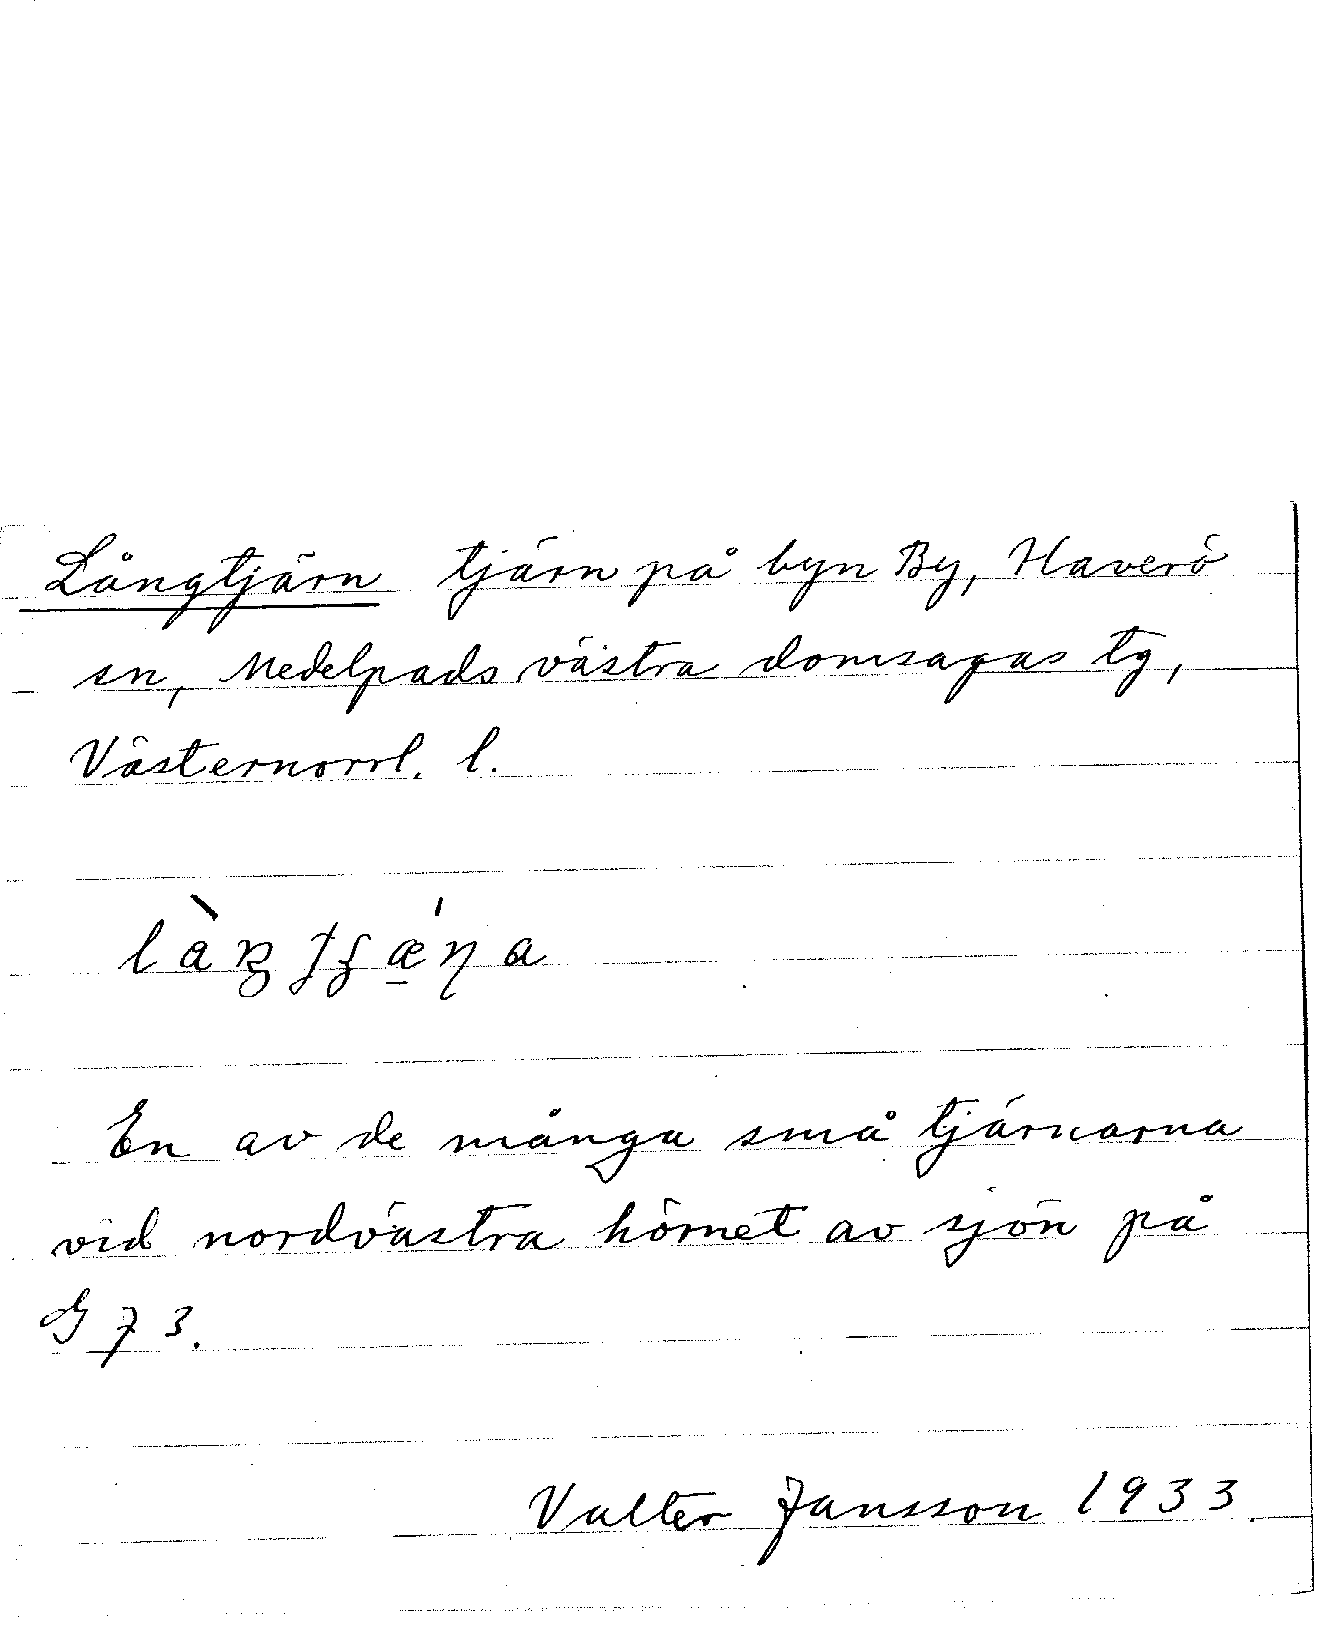 Långtjärn tjärn på byn By, Haverö
sn, Medelpads västra domsagas tg,
Västernorrl. l.
En av de många små tjärnarna
vid nordvästra hörnet av sjön på
G 73.
Valter Jansson 1933.